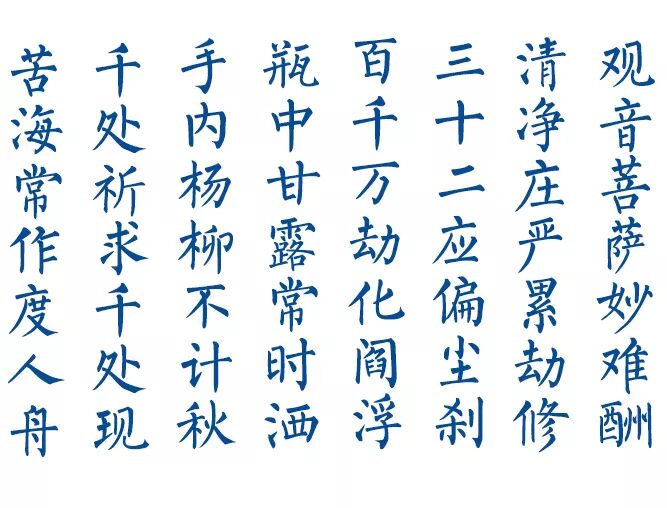 观音菩萨妙难酬
清净庄严累劫修
三十二应偏尘刹
百千万劫化阎浮
瓶中甘露常时洒
手内杨柳不计秋
千处祈求千处现
苦海常作度人舟